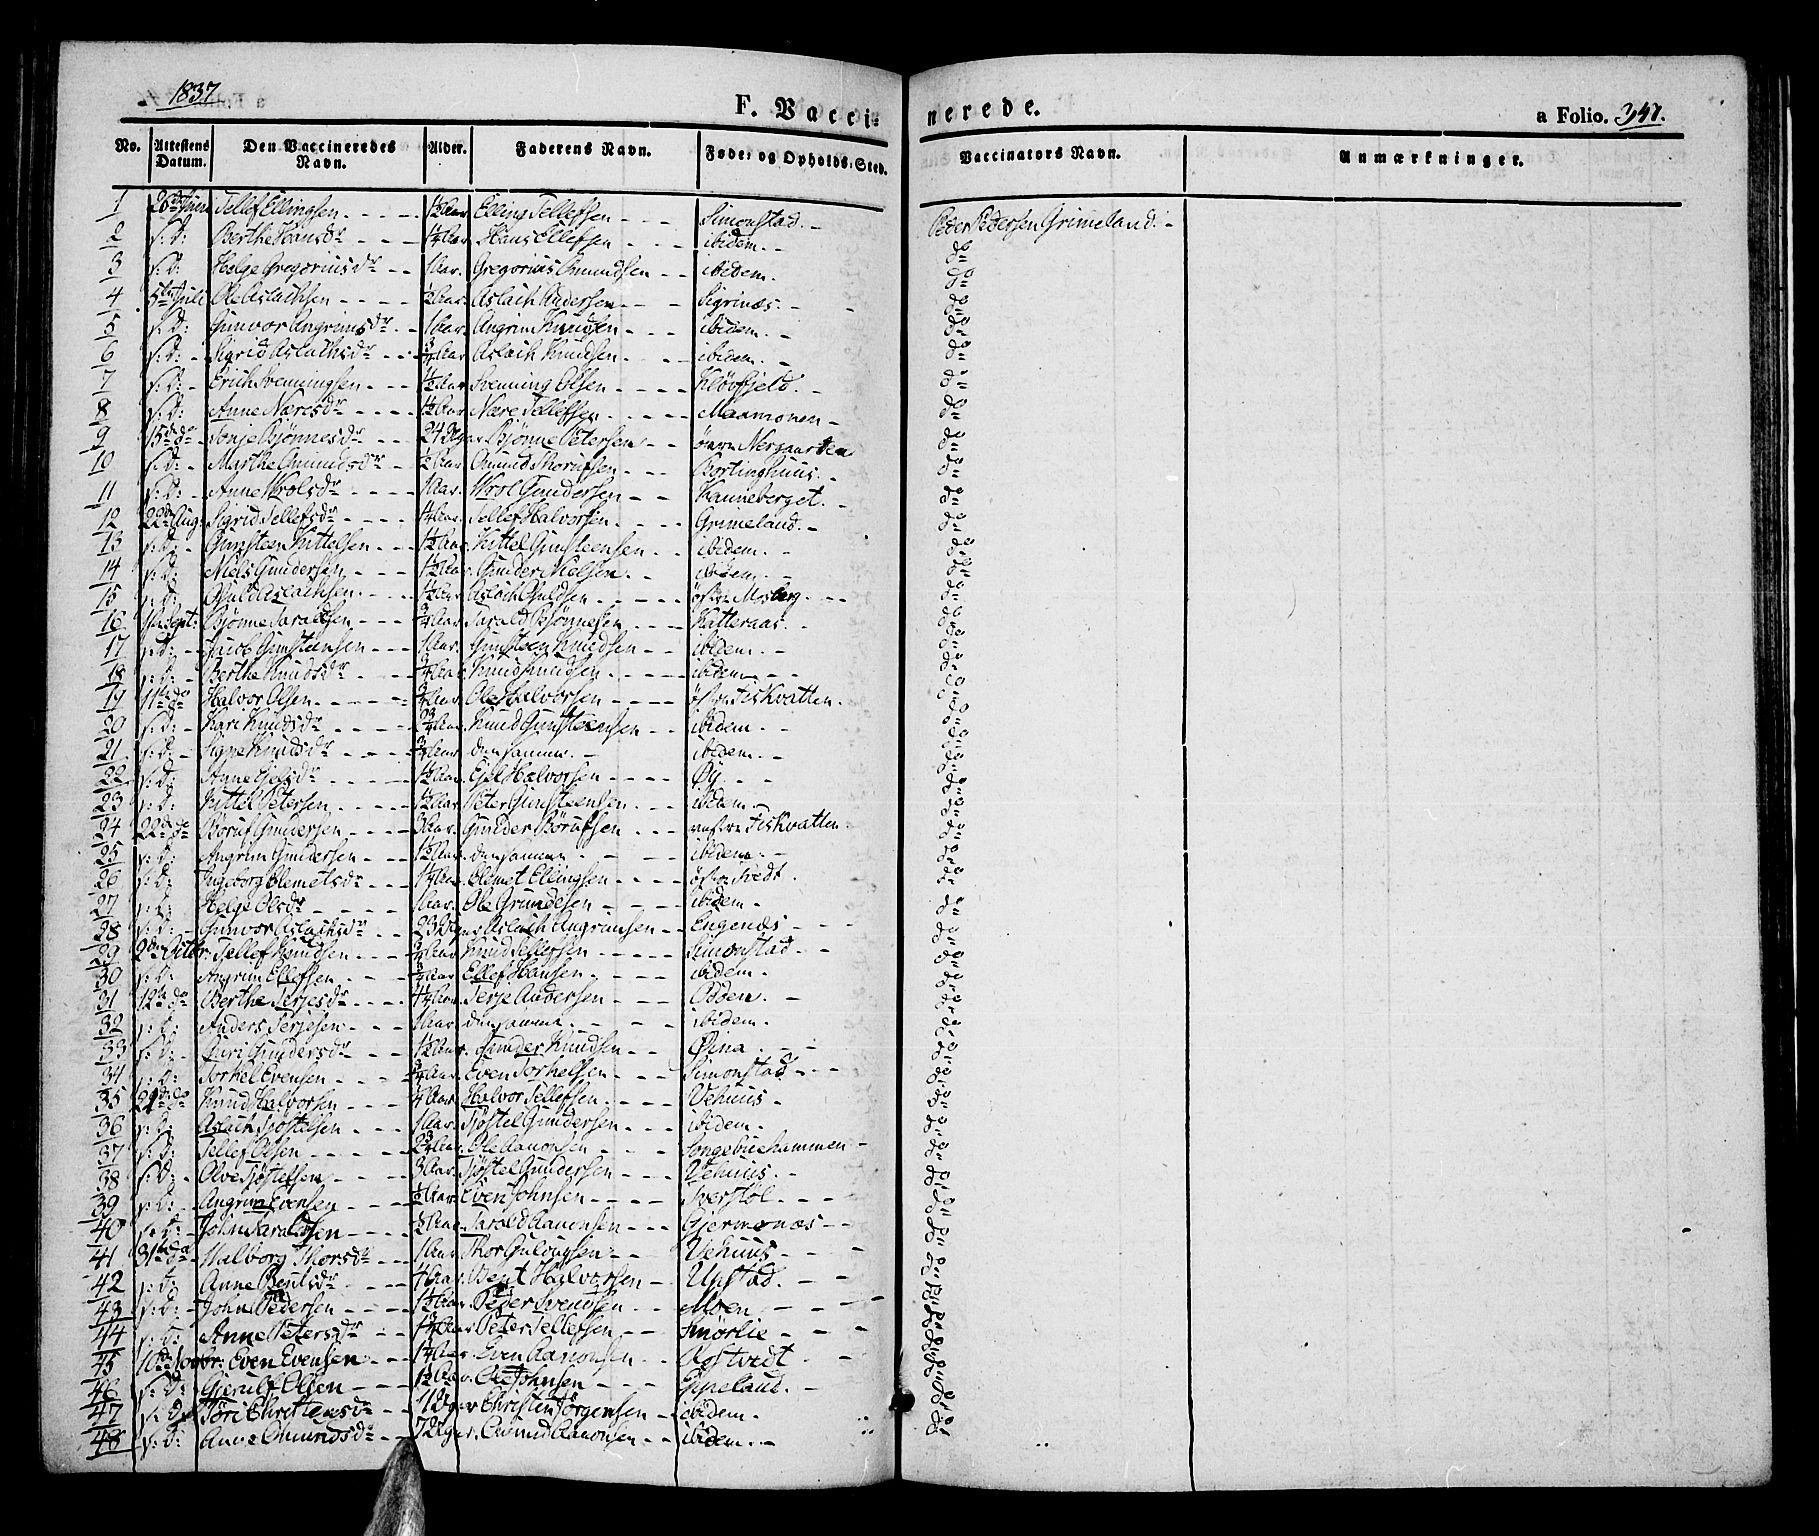 1837
F. Vacci-
nerede.
a Folio. 347.
No. Attestens Datum. Den Vaccineredes Navn. Alder. Faderens Navn. Føde- og Opholds-Sted. Vaccinators Navn. Anmærkninger.
1 26de Juni Tellef Ellingsen 1½ Aar Elling Tellefsen Simonstad. Peder Pedersen Grimeland.
2 s: D: Berthe Hansdr 1¼ Aar Hans Ellefsen ibidem. do
3 s: D: Helge Gregoriusdr 1 Aar. Gregorius Omundsen ibidem. do
4 5te Juli Ole Aslachsen ½ Aar. Aslach Andersen Sigrinæs. do
5 s: D: Gunvor Angrimsdr 1 Aar. Angrim Knudsen ibidem. do
6 s: D: Sigrid Aslachsdr ¾ Aar. Aslach Knudsen ibidem. do
7 s: D: Erich Svenningsen 1½ Aar Svenning Olsen Kløvfjeld. do
8 s: D: Anne Næresdr 1½ Aar Nære Tellefsen Maamonen do
9 15de do Tonje Bjønnesdr 24 Uger Bjønne Petersen øvre Nergaarden do
10 s: D: Marthe Omundsdr ½ Aar Omund Thorufsen Bortinghuus. do
11 s: D: Anne Wrolsdr 1 Aar. Wrol Gundersen Kanneberget. do
12 22de Aug: Sigrid Tellefsdr ¼ Aar. Tellef Halvorsen Grimeland. do
13 s: D: Gunsteen Kittelsen 1½ Aar. Kittel Gunsteensen ibidem. do
14 s: D: Niels Gundersen 1½ Aar. Gunder Nielsen ibidem. do
15 s: D: Ohuld Aslachsen 1½ Aar. Aslach Ohuldsen østre Mosberg. do
16 1ste Sept: Bjønne Taraldsen ¾ Aar. Tarald Bjønnesen Katteraas. do
17 s: D: Jacob Gunsteensen 1 Aar. Gunsteen Knudsen ibidem. do
18 s: D: Berthe Knudsdr ¾ Aar. Knud Knudsen ibidem. do
19 11te do Halvor Olsen ¾ Aar. Ole Halvorsen østre Fiskvatten. do
20 s: D: Kari Knudsdr 2¾ Aar. Knud Gunsteensen ibidem. do
21 s: D: Signe Knudsdr ¾ Aar. den samme. ibidem. do
22 s: D: Anne Ejelsdr 1½ Aar. Ejel Halvorsen Øy. do
23 s: D: Kittel Petersen 1½ Aar. Peter Gunsteensen ibidem. do
24 22de do Boruf Gundersen 3 Aar. Gunder Børufsen vestre Fiskvatten. do
25 s: D: Angrim Gundersen 1½ Aar. den samme ibidem. do
26 s: D: Ingeborg Clemetsdr 1½ Aar. Clemet Ellingsen østre Tvedt. do
27 s: D: Helge Olsdr 1 Aar. Ole Grundesen ibidem. do
28 s: D: Gunvor Aslachsdr 23 Uger Aslach Angrimsen Engenes do
29 2den Octbr. Tellef Knudsen ¾ Aar. Knud Tellefsen Simonstad. do
30 s: D: Angrim Ellefsen ¾ Aar. Ellef Hansen. ibidem. do
31 12te do Berthe Terjesdr 4¼ Aar. Terje Andersen Odden. do
32 s: D: Anders Terjesen 1 Aar. den samme. ibidem. do
33 s: D: Guri Gundersdr 1½ Aar. Gunder Knudsen Øina do
34 s: D: Torkel Evensen ¾ Aar. Even Torkelsen Simonstad. do
35 21de do Knud Halvorsen ¼ Aar. Halvor Tellefsen Vehuus do
36 s: D: Aslach Tjøstelsen 1 Aar. Tjøstel Gundersen ibidem. do
37 s: D: Tellef Olsen 2¾ Aar. Ole Aanonsen Songebuehammen do
38 s: D: Olve Tjøstelsen 3 Aar. Tjøstel Gundersen Vehuus. do
39 s: D: Angrim Evensen ½ Aar. Even Johnsen Sverstøl. do
40 s: D: John Taraldsen ½ Aar. Tarald Aanonsen Gjermonæs do
41 31te do Walborg Thorsdr 1 Aar. Thor Gulovsen Vehuus do
42 s: D: Anne Bentsdr ¼ Aar. Bent Halvorsen Upstad. do
43 s: D: John Pedersen 1½ Aar. Peder Svendsen Moen do
44 s: D: Anne Petersdr 1¾ Aar Peter Tellefsen Smørlie do
45 10de Novbr: Even Evensen 1¼ Aar. Even Aanonsen Rostvedt do
46 s: D: Gjerulf Olsen 1½ Aar. Ole Johnsen Eppeland. do
47 s: D: Jøri Christensdr 11 Uger Christen Jørgensen ibidem. do
48 s: D: Anne Omundsdr 7 Uger. Omund Aanonsen ibidem. do